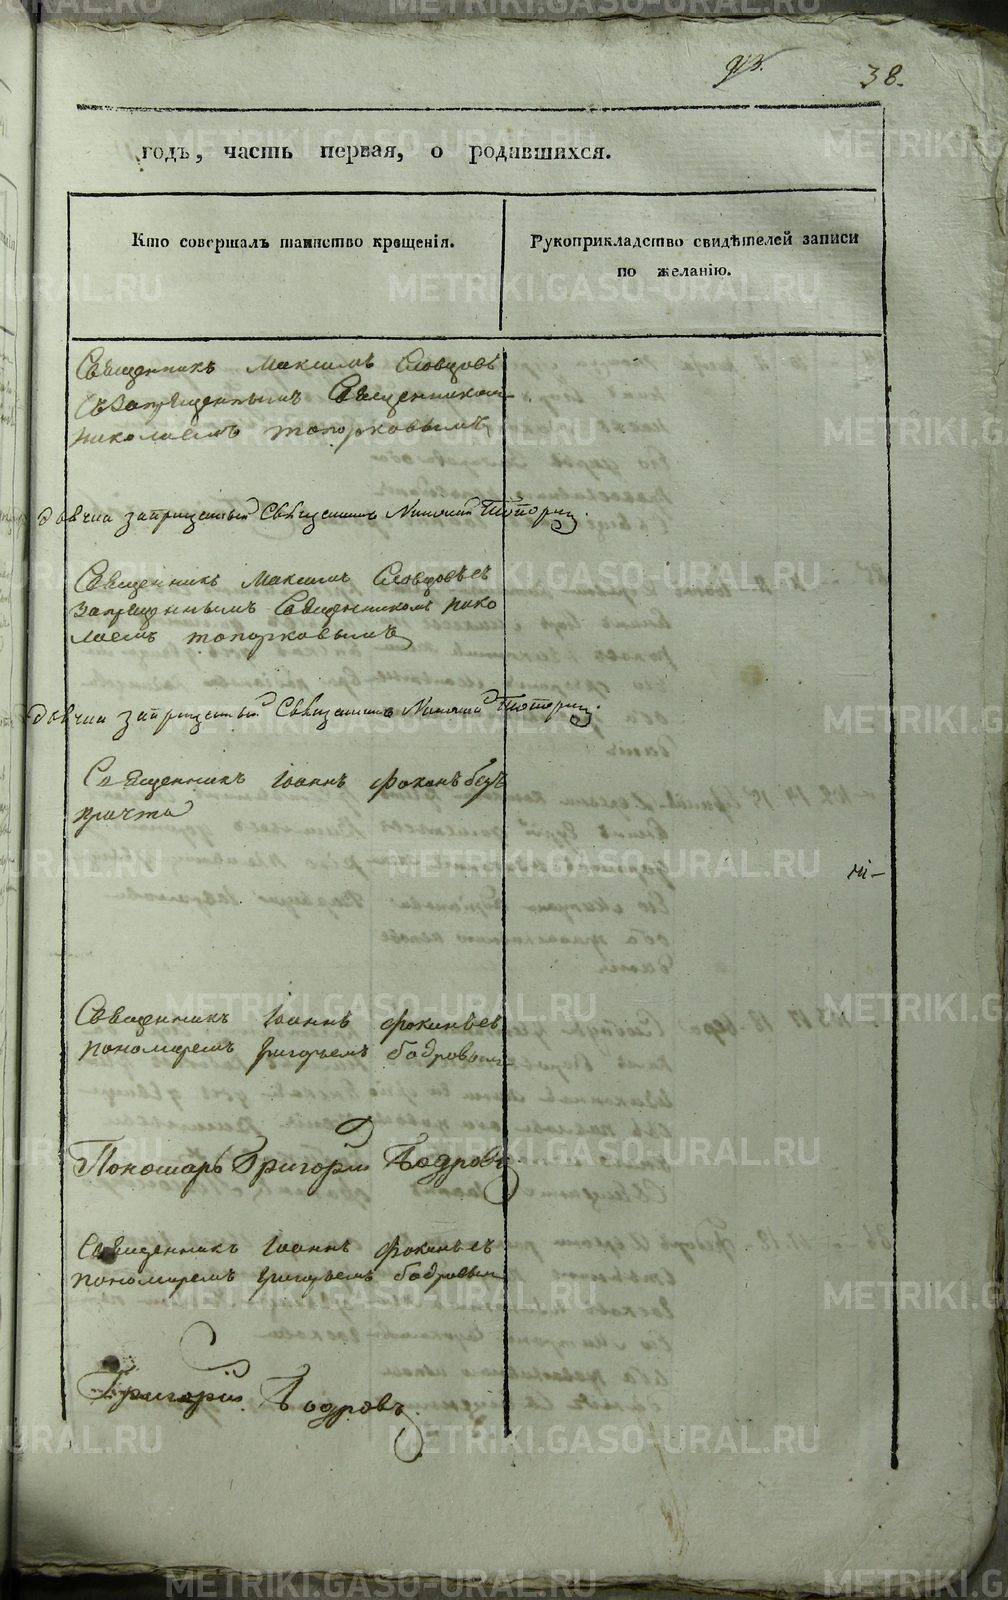 38.
годъ, часть первая, о родившихся.
Кто совершалъ таинство крещенія.
Рукоприкладство свидѣтелей записи
по желанію.
Священникъ Максимъ Словцовъ
съ запрещеннымъ Священникомъ
николаемъ топорковымъ
запрещенный Священникъ Николай
Священникъ Максимъ Словцовъ съ
запрещеннымъ Священникомъ нико
лаемъ топорковымъ
запрещенный Священникъ Николай
Священникъ Іоаннъ Фокинъ безъ
причта
Священникъ Іоаннъ Фокинъ съ
пономаремъ григорьемъ бодровымъ
Пономарь Григорій Бодровъ
Священникъ Іоаннъ Фокинъ съ
пономаремъ григорьемъ бодровым
Григорій Бодровъ
METRIKI.GASO-URAL.RU